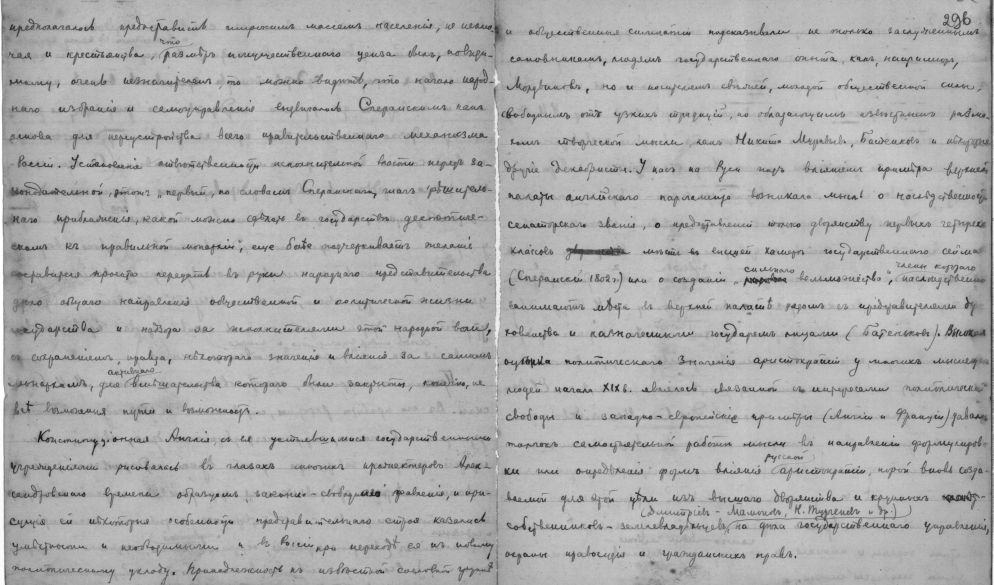 предполагалось предоставить широким массам населенія, не исклю-
чая и крестьянства, что размѣръ имущественнаго ценза былъ, повиди-
мому, очень незначителенъ, то можно видѣть, что начало народ-
наго избранія и самоуправленія Сперанскимъ какъ
основа для переустройства всего правительственнаго механизма
Россіи. Установленіе отвѣтственности исполнительной власти передъ за-
конодательной, этотъ „первый, по словамъ Сперанскаго, шагъ рѣшитель-
наго приближенія, какой можно сдѣлать въ государствѣ деспотиче-
скомъ къ правильной монархіи", еще болѣе подчеркиваетъ желаніе
передать въ руки народнаго представительства
дѣло общаго направленія общественной и политической жизни
государства и надзора за исполнителями этой народной воли,
съ сохраненіемъ, правда, нѣкотораго значенія и вліянія за самимъ
монархомъ, для активнаго вмѣшательства котораго были закрыты, конечно, не
всѣ возможные пути и возможности.
Конституціонная Англія съ ея государственными
учрежденіями рисовалась въ глазахъ многихъ прожектеровъ Алек-
сандровскаго времени образцомъ законно-свободнаго правленія, и при-
сущія ей нѣкоторыя особенности представительнаго строя казались
умѣстными и необходимыми и въ Россіи при переходѣ ея къ новому
политическому укладу. Принадлежность къ извѣстной сословной группѣ
296
и общественныя симпатіи подсказывали не только заслуженнымъ
сановникамъ, людямъ государственнаго опыта, какъ, напримѣръ,
Мордвиновъ, но и носителямъ свѣжей, молодой общественной силы,
свободнымъ отъ узкихъ традицій, но обладающимъ извѣстнымъ размa-
хомъ творческой мысли, какъ Никита Муравьевъ, Батеньковъ и нѣкоторые
другіе декабристы. У насъ на Руси подъ вліяніемъ примѣра верхней
палаты англійскаго парламента возникала мысль о наслѣдственности
сенаторскаго званія, о предоставленіи только дворянству первыхъ четырехъ
классовъ мѣстъ въ высшей камерѣ государственнаго сейма
(Сперанскій 1802г.) или о созданіи „сильнаго вельможества", члены котораго наслѣдственно
занимаютъ мѣста въ верхней палатѣ рядомъ съ представителями ду-
ховенства и назначенными государемъ лицами (Батеньковъ). Высокая
оцѣнка политическаго значенія аристократіи у многихъ мыслящ.
людей начала XIX в. являлась связанной съ интересами политической
свободы и западно-европейскіе примѣры (Англіи и Франціи) давали
толчокъ самостоятельной работы мысли въ направленіи формулиров-
ки или опредѣленія формъ вліянія русской аристократіи, порой вновь созда-
ваемой для этой цѣли изъ высшаго дворянства и крупныхъ
собственниковъ-землевладѣльцевъ (Дмитріевъ-Мамоновъ, Н. Тургеневъ и др.) на дѣла государственнаго управленія,
охраны правосудія и гражданскихъ правъ.